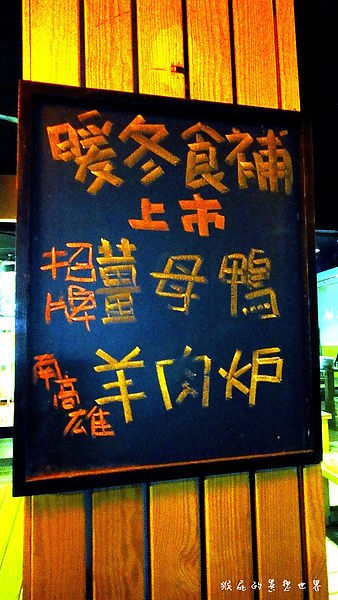 暖冬食補
上市
招牌薑母鴨
南高雄羊肉炉
猴屁的異想世界